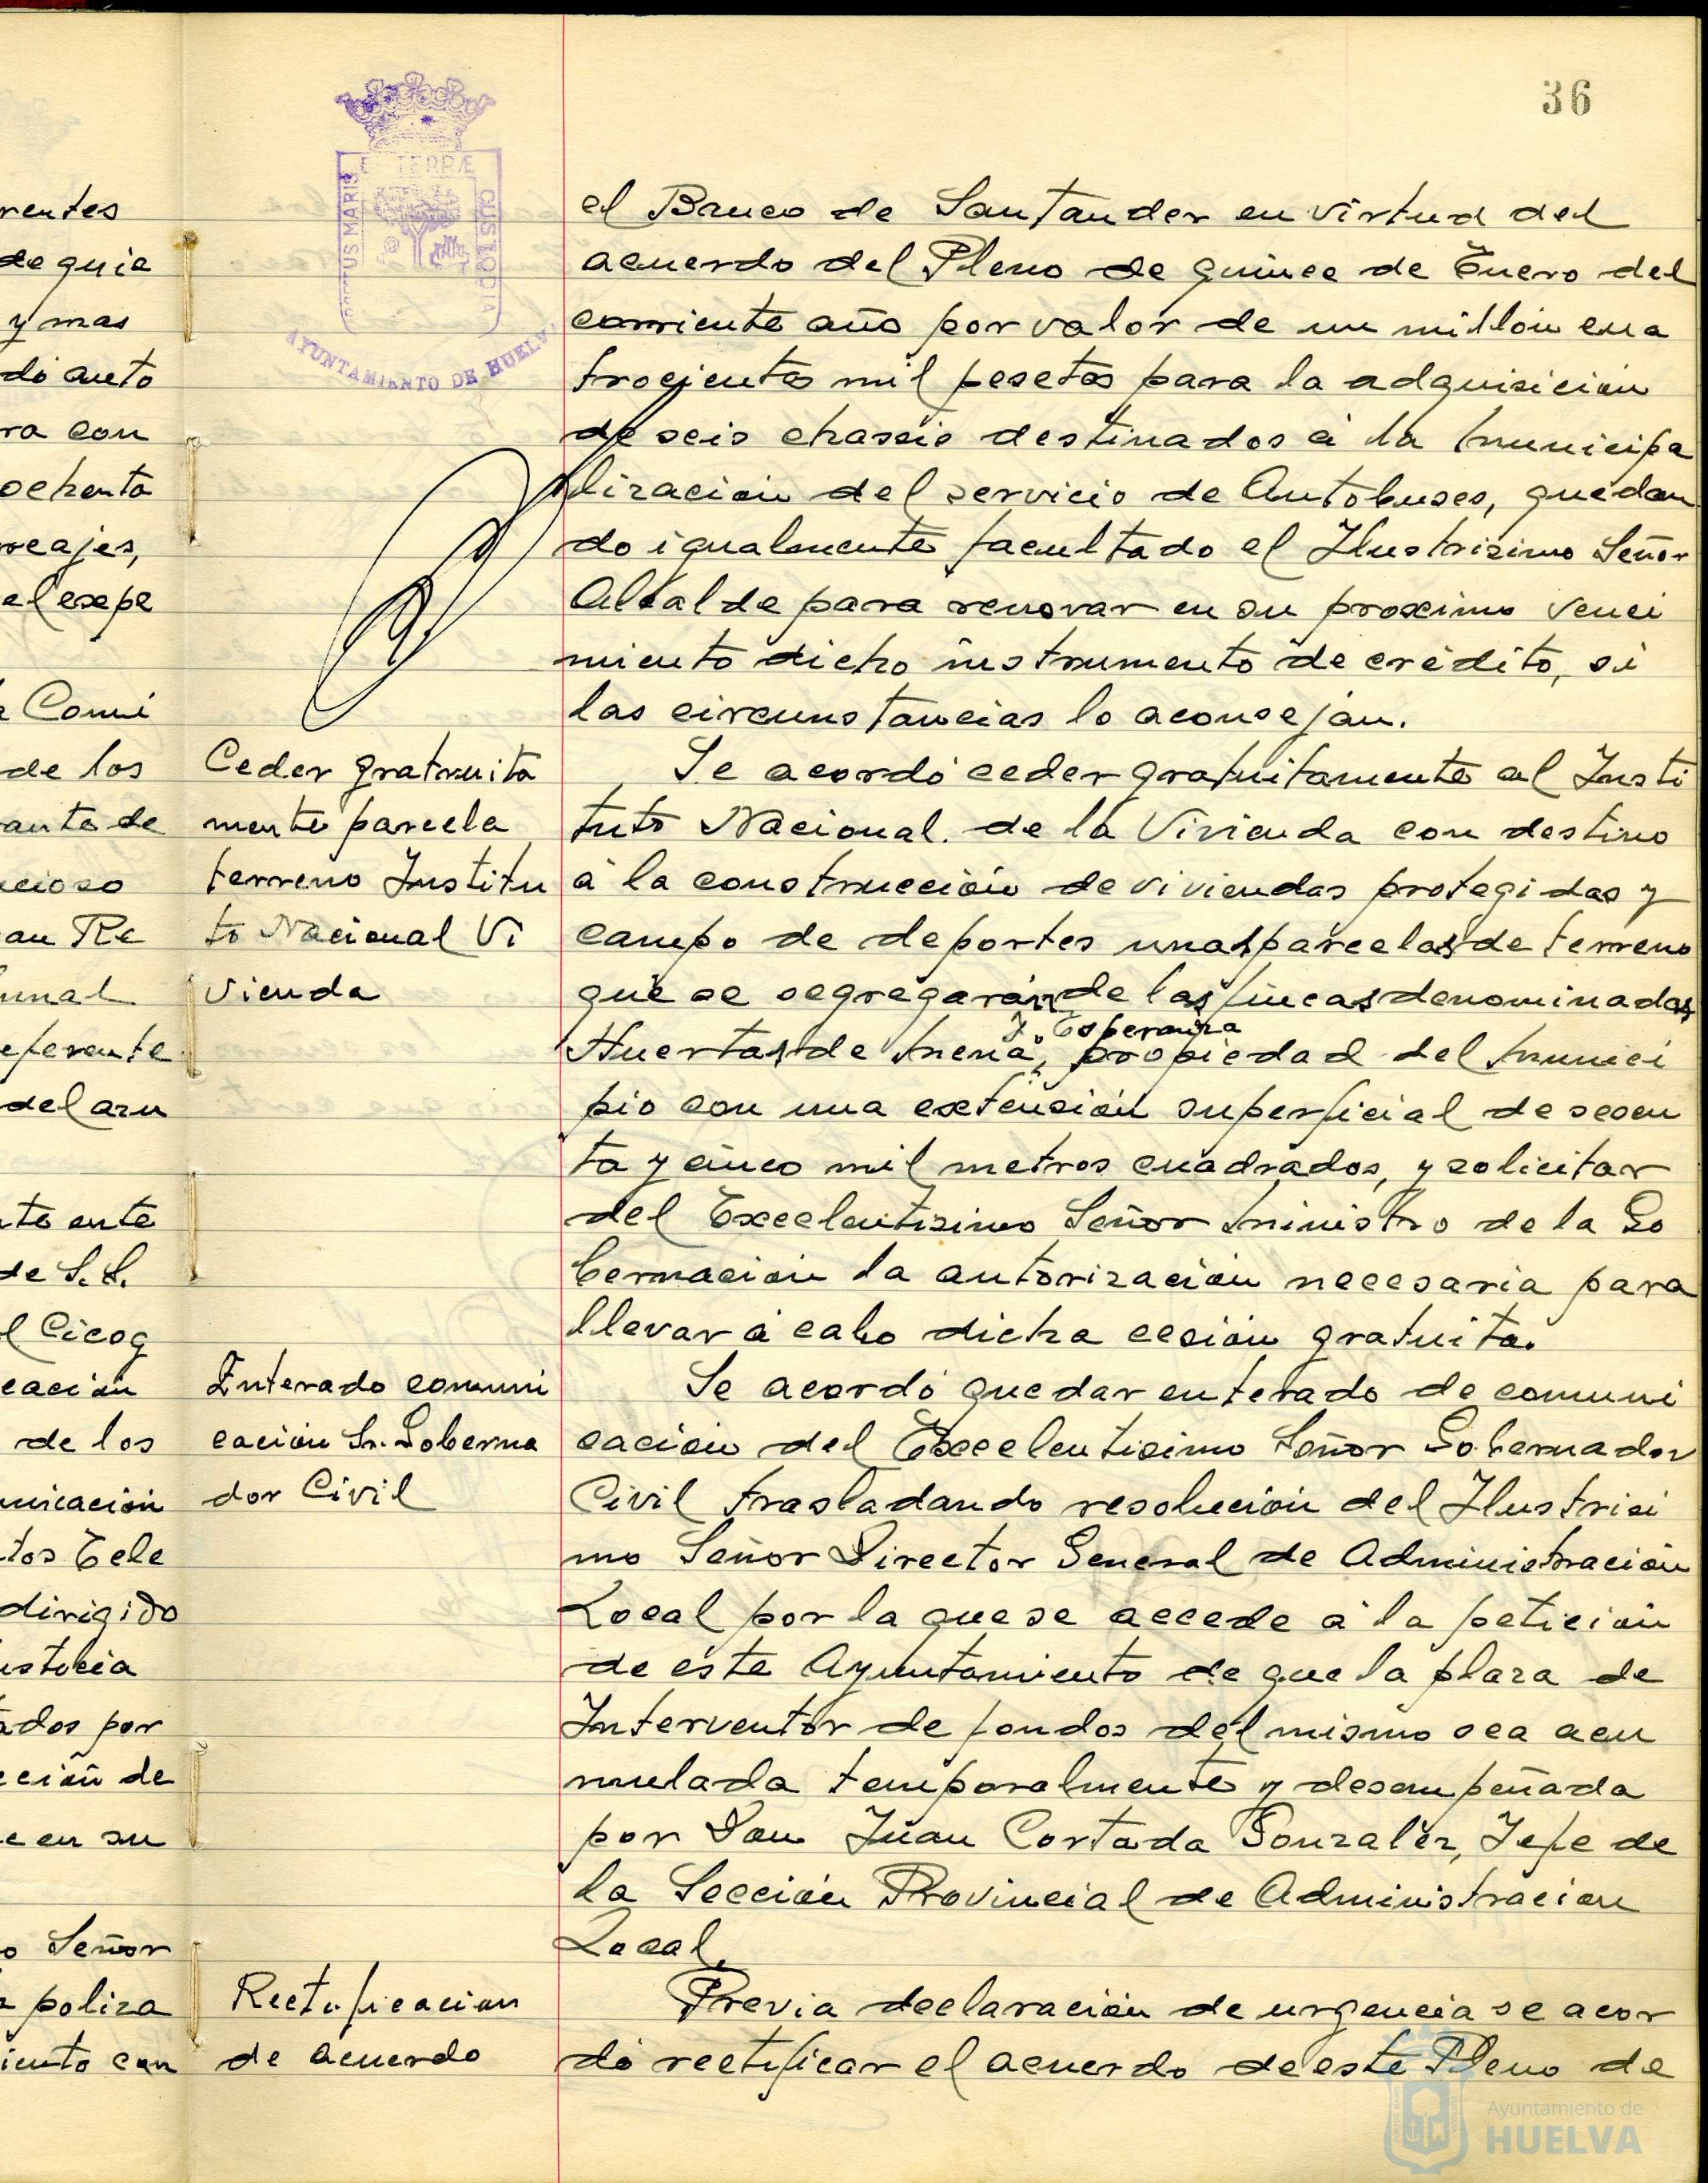 36
PORTUS MARIS ET TERRÆ CUSTODIA
AYUNTAMIENTO DE HUELVA
rentes
de quie
y mas
dó auto
ra con
ochenta
reajes,
el expe
Comi
de los
ante de
cioso
an Re
unal
eferente
del azu
te ente
de S.S.
l Cicog
cación
de los
unicación
tos Cele
dirigido
ustocia
ados por
cción de
e en su
o Señor
poliza
iento con
el Banco de Santander en virtud del
acuerdo del Pleno de quince de Enero del
corriente año por valor de un millón cua
trocientas mil pesetas para la adquisición
de seis chassis destinados á la municipa
lización del servicio de Autobuses, quedan
do igualmente facultado el Ilustrisimo Señor
Alcalde para renovar en su proximo venci
miento dicho instrumento de crédito, si
las circunstancias lo aconsejan.
Ceder gratruita
mente parcela
terreno Institu
to Nacional Vi
vienda
Se acordó ceder gratuitamente al Insti
tuto Nacional de la Vivienda con destino
á la construcción de viviendas protegidas y
campo de deportes unas parcelas de terreno
que se segregarán de las fincas denominadas
Huertas de Mena, y Esperanza propiedad del Munici
pio con una extensión superficial de sesen
ta y cinco mil metros cuadrados, y solicitar
del Excelentisimo Señor Ministro de la Go
bernación la autorización necesaria para
llevar á cabo dicha cesión gratuita.
Enterado comuni
cación Sr. Goberna
dor Civil
Se acordó quedar enterado de comuni
cación del Excelentisimo Señor Gobernador
Civil trasladando resolución del Ilustrisi
mo Señor Director General de Administración
Local por la que se accede á la petición
de este Ayuntamiento de que la plaza de
Interventor de fondos del mismo sea acu
mulada temporalmente y desempeñada
por Don Juan Cortada Gonzalez, Jefe de
la Sección Provincial de Administracion
Local.
Rectificacion
de acuerdo
Previa declaración de urgencia se acor
dó rectificar el acuerdo de este Pleno de
Ayuntamiento de
HUELVA